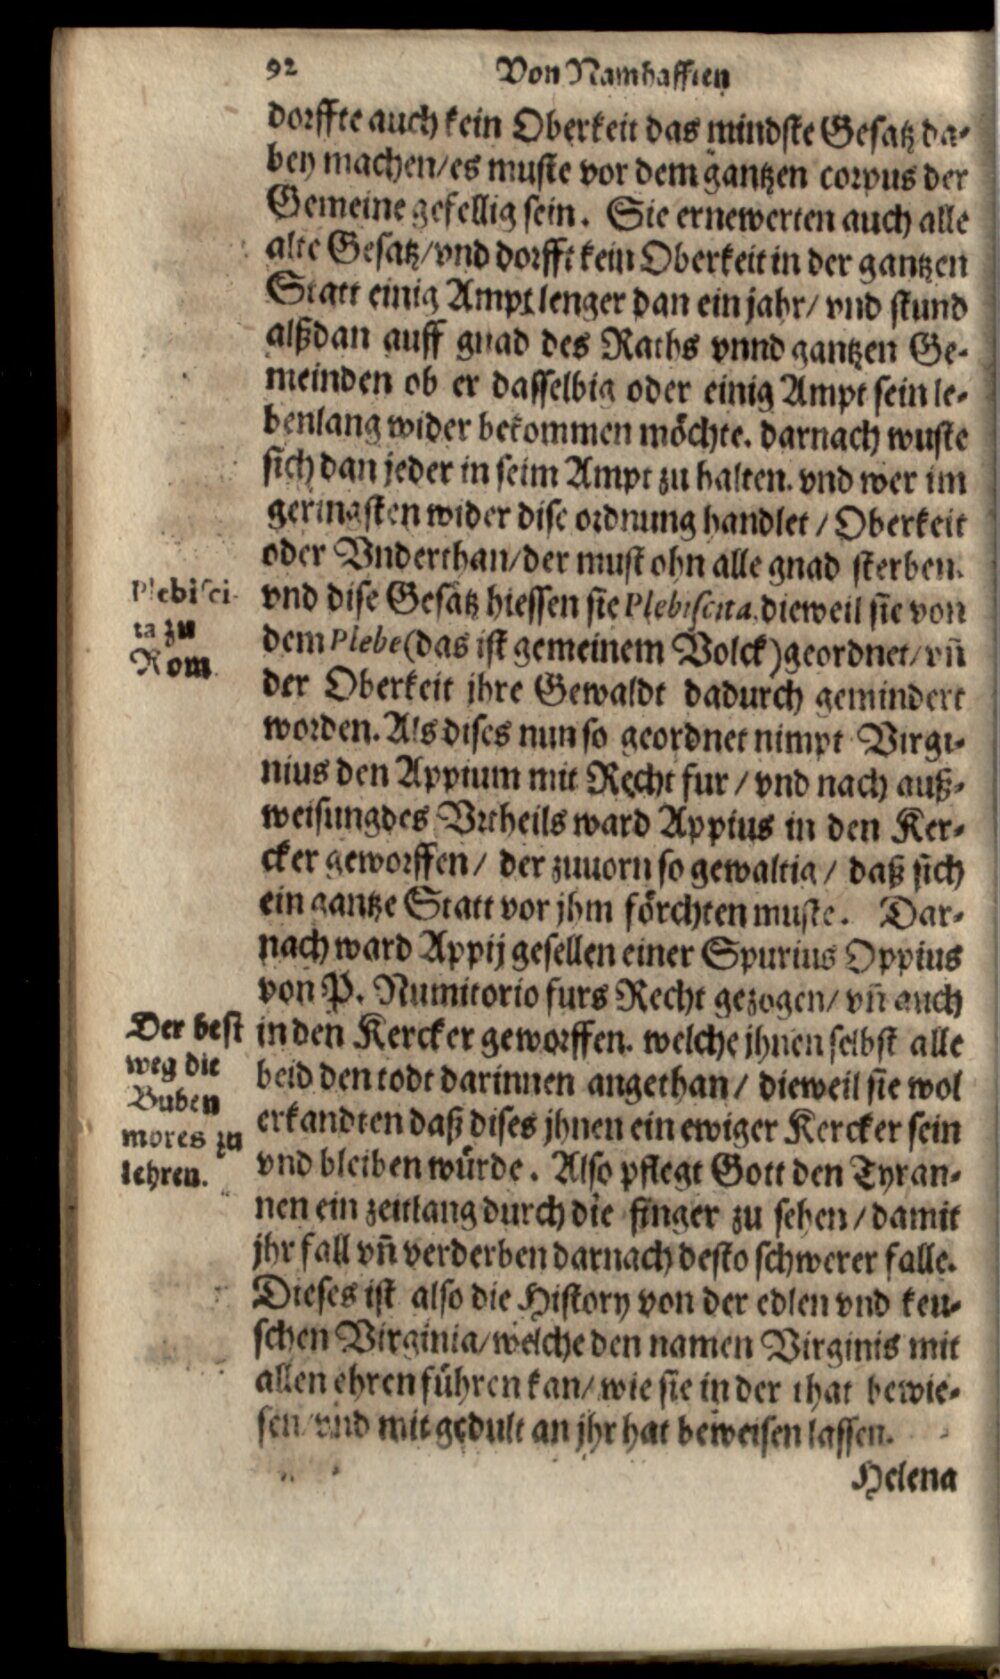 92
Von Namhafften
dorffte auch kein Oberkeit das mindste Gesatz da-
bey machen/es muste vor dem gantzen corpus der
Gemeine gefellig sein. Sie ernewerten auch alle
alte Gesatz/vnd dorfft kein Oberkeit in der gantzen
Statt einig Ampt lenger dan ein jahr/ vnd stund
alßdan auff gnad des Raths vnnd gantzen Ge-
meinden ob er dasselbig oder einig Ampt sein le-
benlang wider bekommen möchte. darnach wuste
sich dan jeder in seim Ampt zu halten. vnd wer im
geringsten wider dise ordnung handlet / Oberkeit
oder Vnderthan/der must ohn alle gnad sterben.
vnd dise Gesätz hiessen sie Plebiscita, dieweil sie von
dem Plebe (das ist gemeinem Volck) geordnet/ vñ
der Oberkeit jhre Gewaldt dadurch gemindert
worden. Als dises nun so geordnet nimpt Virgi-
nius den Appium mit Recht fur / vnd nach auß-
weisung des Vrtheils ward Appius in den Ker-
cker geworffen/ der zuuorn so gewaltig / daß sich
ein gantze Statt vor jhm förchten muste. Dar-
nach ward Appij gesellen einer Spurius Oppius
von P. Numitorio furs Recht gezogen/ vñ auch
in den Kercker geworffen. welche jhnen selbst alle
beid den todt darinnen angethan / dieweil sie wol
erkandten daß dises jhnen ein ewiger Kercker sein
vnd bleiben würde. Also pflegt Gott den Tyran-
nen ein zeitlang durch die finger zu sehen / damit
jhr fall vñ verderben darnach desto schwerer falle.
Dieses ist also die History von der edlen vnd keu-
schen Virginia/welche den namen Virginis mit
allen ehren führen kan/ wie sie in der that bewie-
sen/ vnd mit gedult an jhr hat beweisen lassen.
Helena
Plebisci-
ta zu
Rom.
Der best
weg die
Buben
mores zu
lehren.